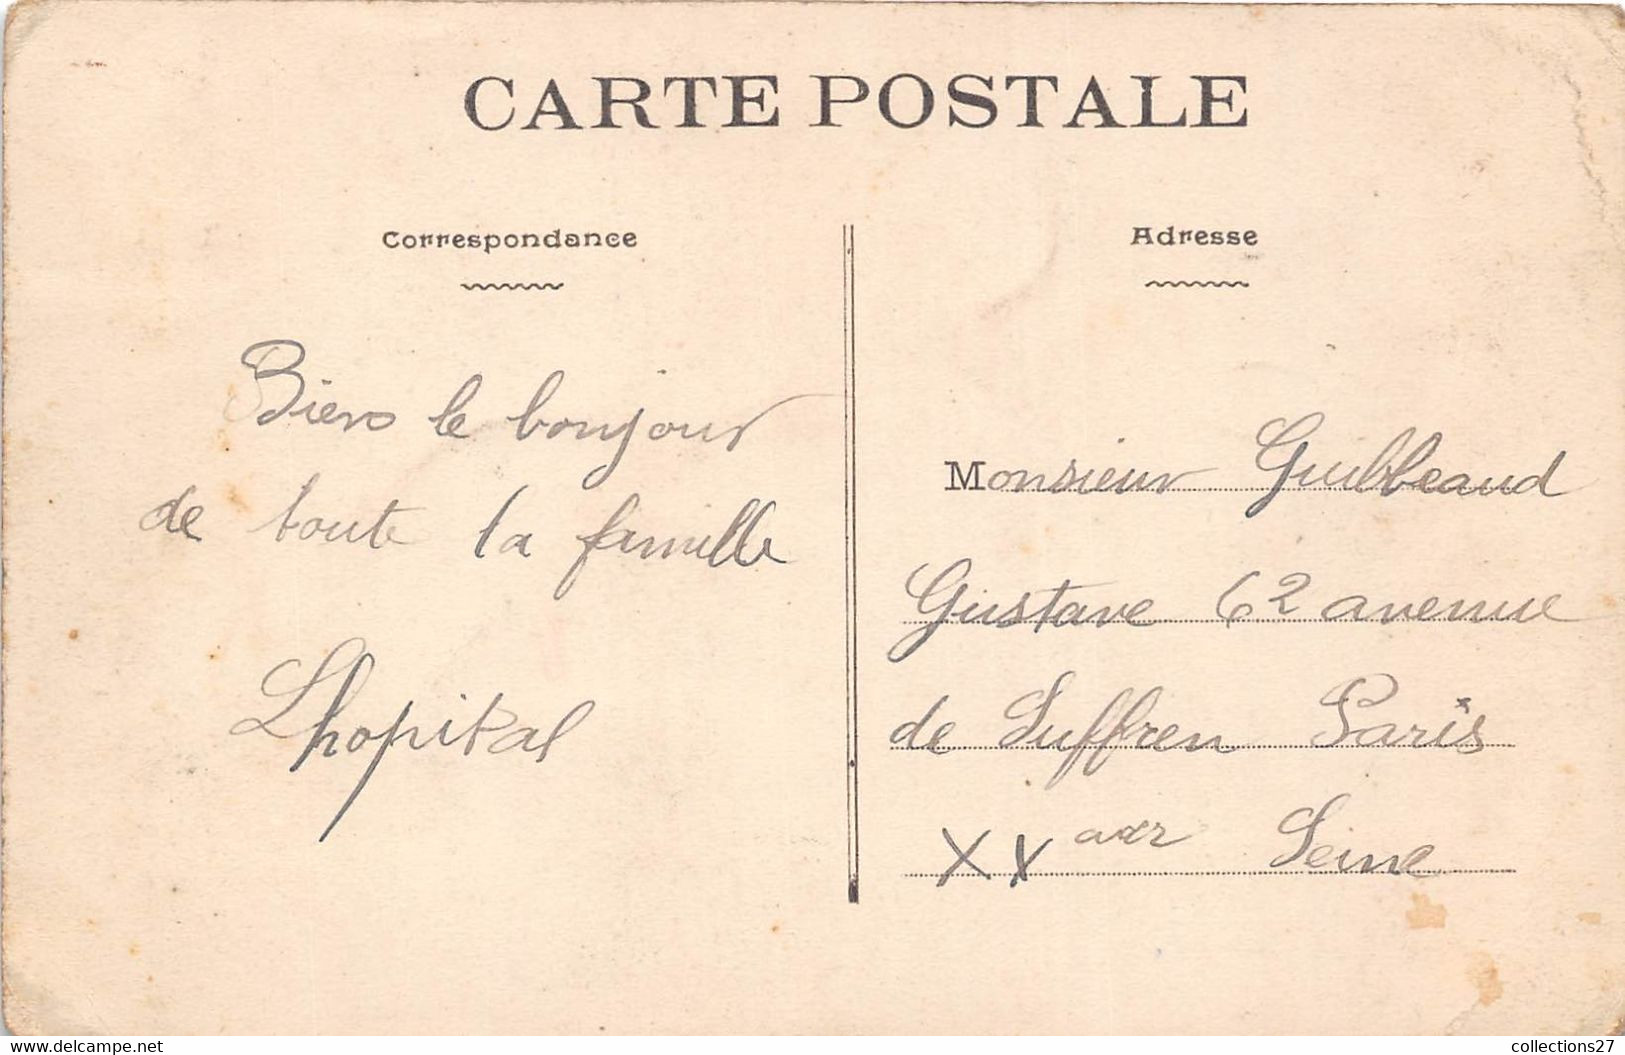 CARTE POSTALE
Correspondance
Bien le bonjour
de toute la famille
Lhopital
Adresse
Monsieur Guilbeaud
Gustave 62 avenue
de Suffren Paris
XX arr Seine
www.delcampe.net
collections27